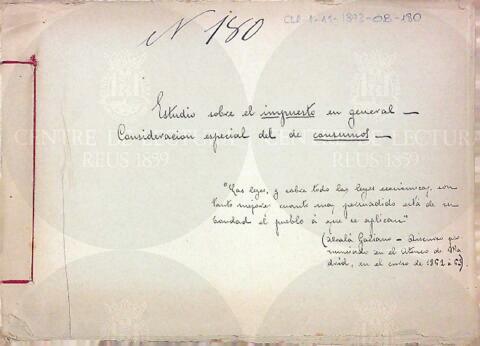 Nº 180
CLR 1-11-1893-08-180
Estudio sobre el impuesto en general —
Consideracion especial del de consumos —
CENTRE DE LECTURA
REUS 1859
"Las leyes, y sobre todo las leyes económicas, son
tanto mejores cuanto mas persuadido está de su
bondad el pueblo á que se aplican"
(Alcalá Galiano — Discurso pro
nunciado en el Ateneo de Ma
drid, en el curso de 1852 á 53).